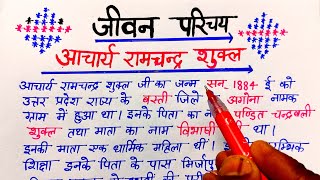 जीवन परिचय
आचार्य रामचन्द्र शुक्ल
आचार्य रामचन्द्र शुक्ल जी का जन्म सन् 1884 ई को
उत्तर प्रदेश राज्य के बस्ती जिले अगोना नामक
ग्राम में हुआ था। इनके पिता का ना पण्डित चन्द्रबली
शुक्ल तथा माता का नाम विभाषी थी था।
इनकी माता एक धार्मिक महिला थीं।
शिक्षा इनके पिता के पास मिर्जापु